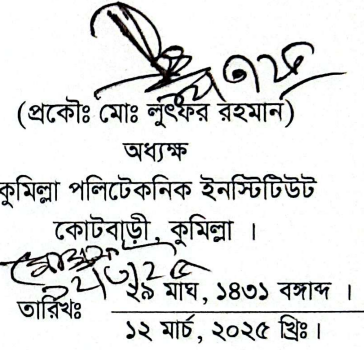 (প্রকৌঃ মোঃ লুৎফর রহমান)
অধ্যক্ষ
কুমিল্লা পলিটেকনিক ইনস্টিটিউট
কোটবাড়ী, কুমিল্লা ।
তারিখঃ ২৯ মাঘ, ১৪৩১ বঙ্গাব্দ ।
১২ মার্চ, ২০২৫ খ্রিঃ।